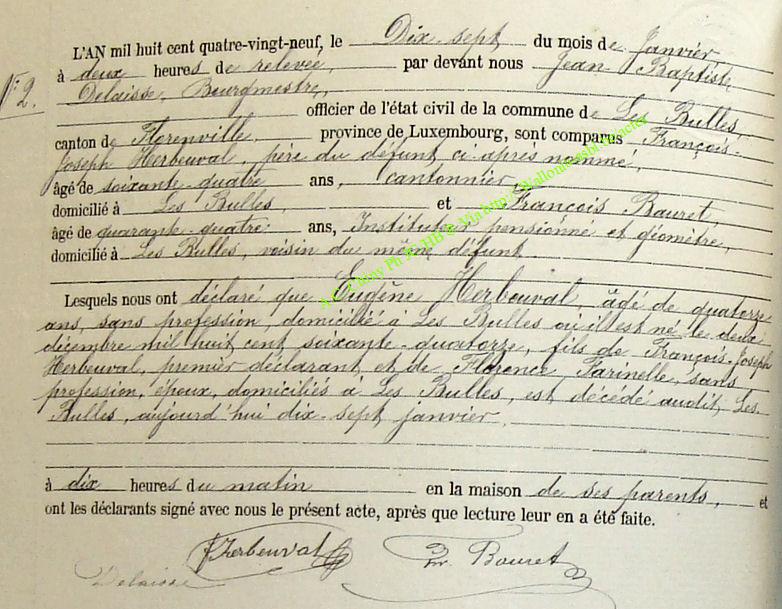 L'AN mil huit cent quatre-vingt-neuf, le Dix-sept du mois de Janvier
à deux heures de relevée, par devant nous Jean Baptiste
N° 2.
Delaisse, Bourgmestre,
officier de l'état civil de la commune de Les Bulles,
canton de Florenville, province de Luxembourg, sont comparus François-
Joseph Herbeuval, père du défunt, ci-après nommé,
âgé de soixante-quatre ans, cantonnier
domicilié à Les Bulles, et François Bauret,
âgé de quarante-quatre ans, Instituteur pensionné et géomètre,
domicilié à Les Bulles, voisin du même défunt
Lesquels nous ont déclaré que Eugène Herbeuval âgé de quatorze
ans, sans profession, domicilié à Les Bulles où il est né le deux
décembre mil huit cent soixante-quatorze, fils de François-Joseph
Herbeuval, premier déclarant et de Florence Farinelle, sans
profession, époux, domiciliés à Les Bulles, est décédé audit Les
Bulles, aujourd'hui dix-sept janvier,
à dix heures du matin en la maison de ses parents, et
ont les déclarants signé avec nous le présent acte, après que lecture leur en a été faite.
Herbeuval Fr. Bauret
Delaisse